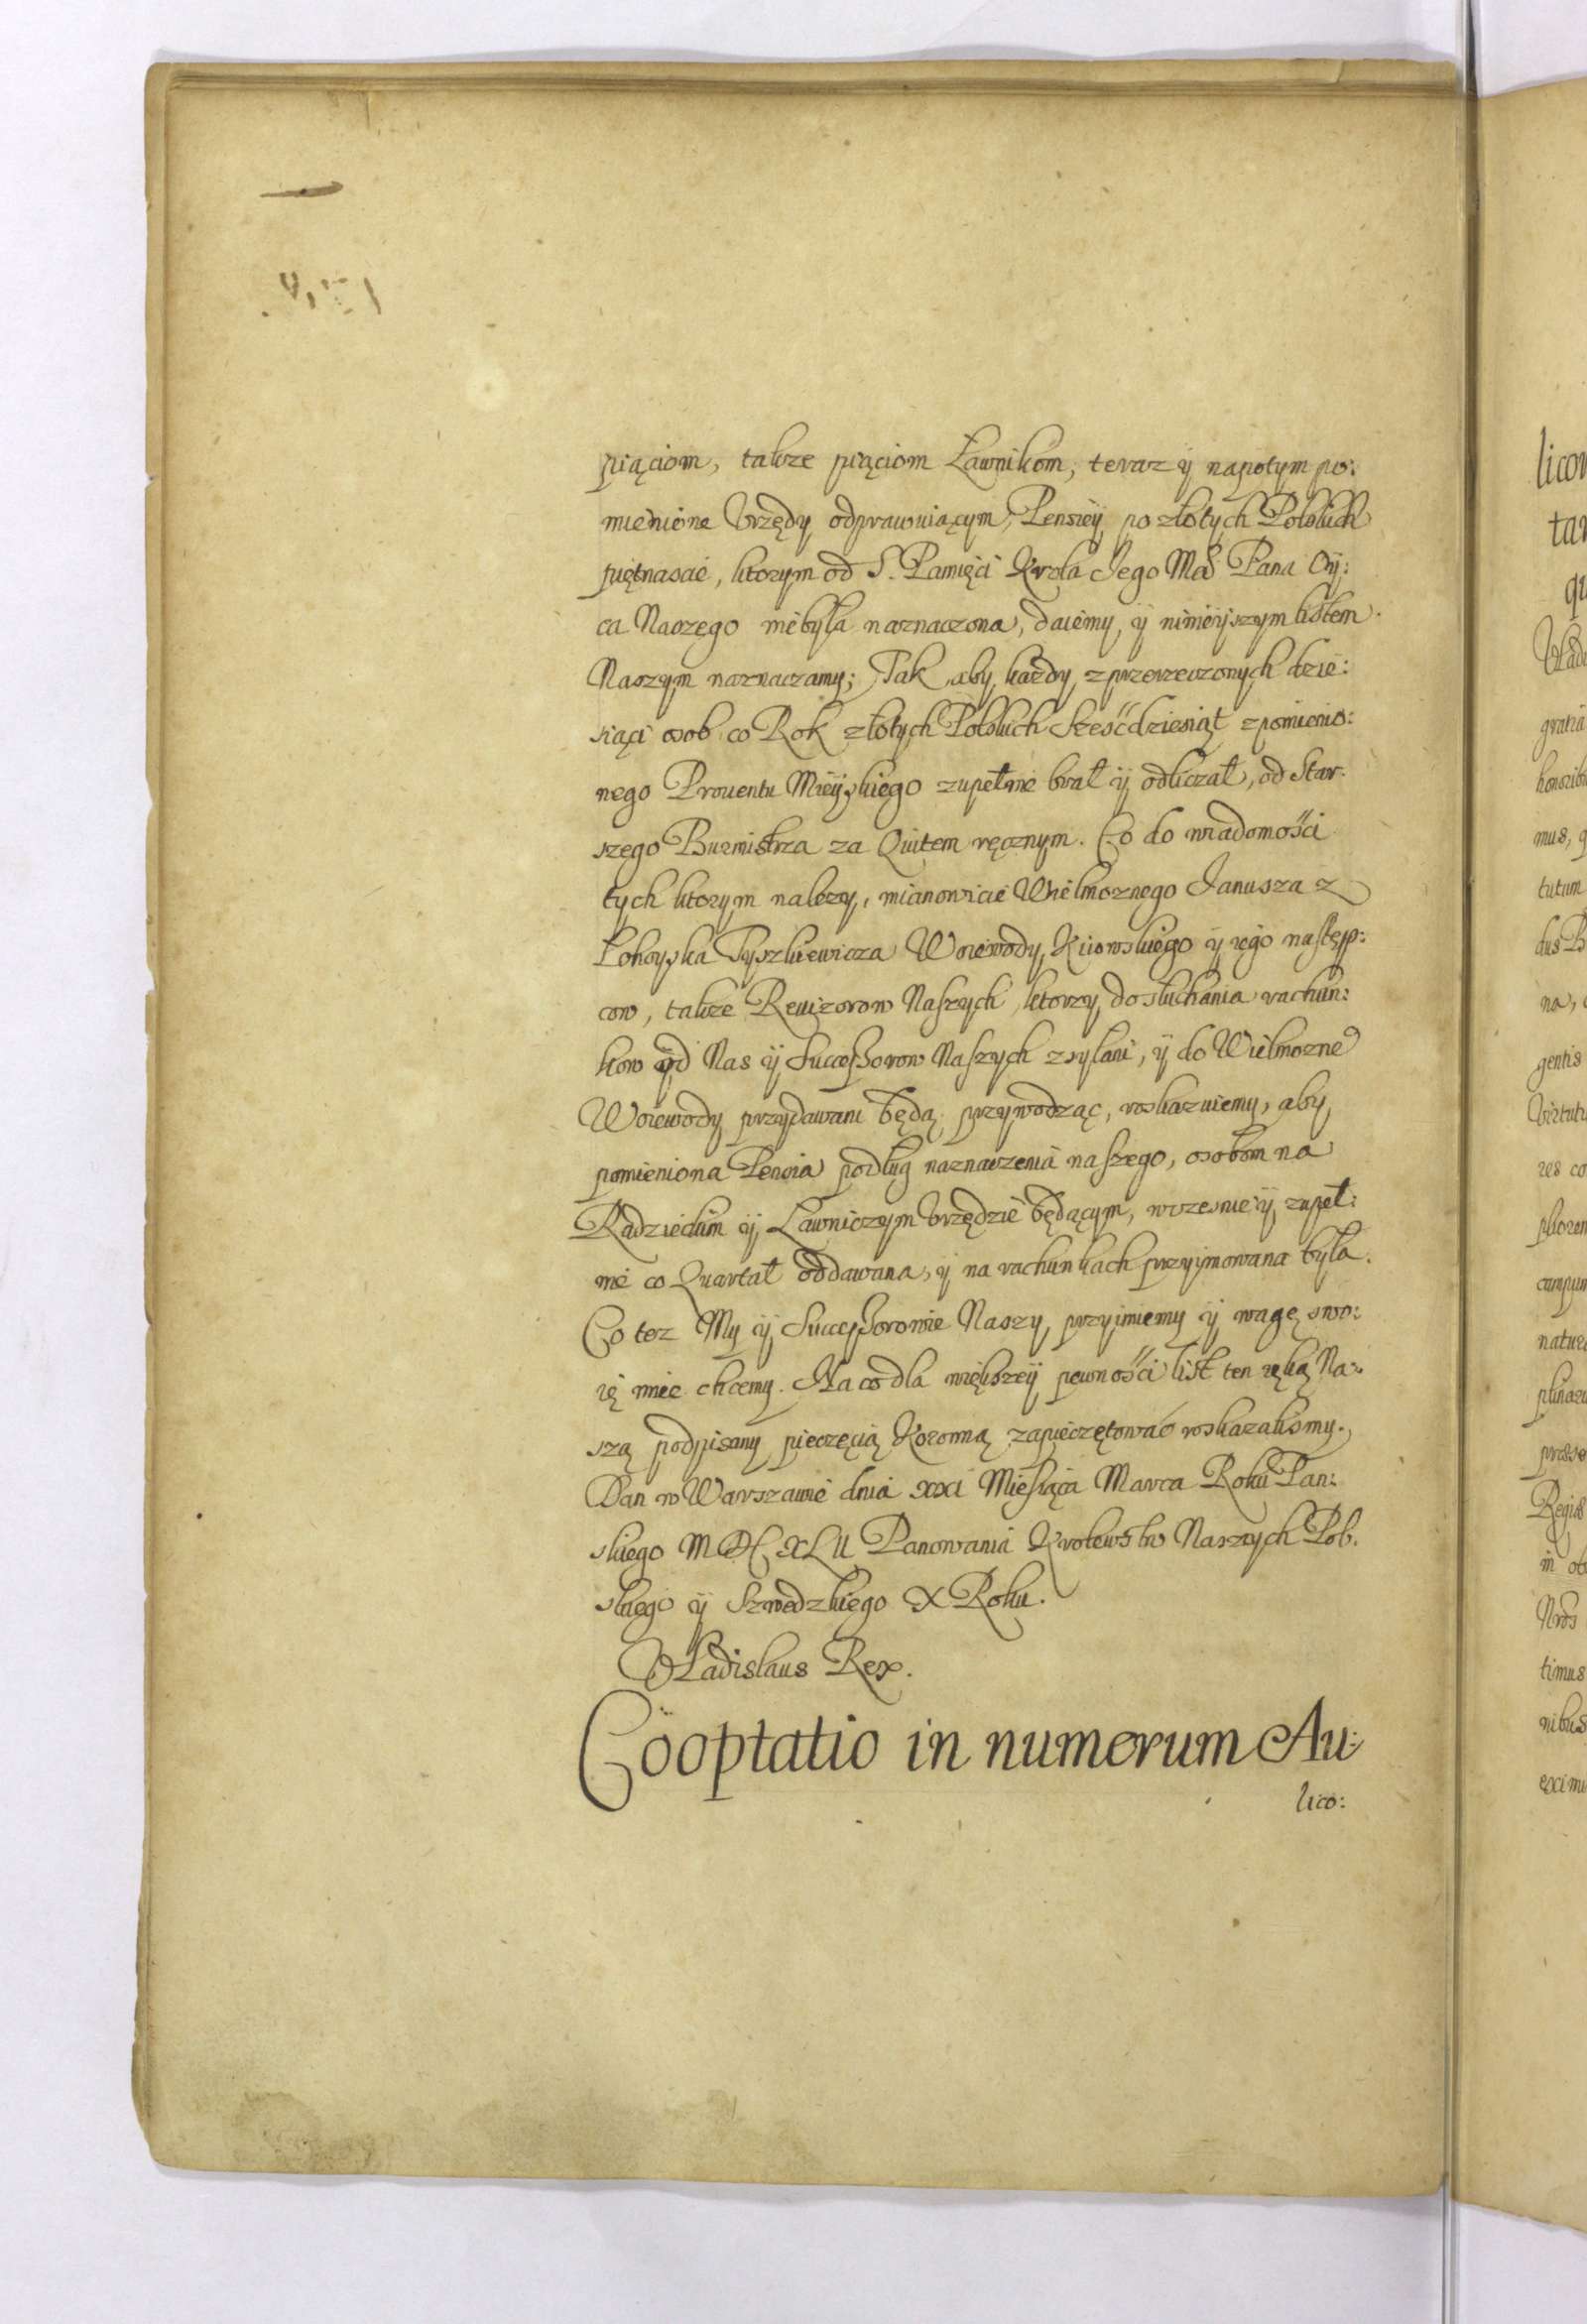 piąciom, takze piąciom Ławnikom, teraz ÿ napotym po:
mienione Vrzędy odprawuiącym, Pensiey po złotych Polskich
piętnascie, ktorym od S. Pamięci Krola Jego Mci Pana Oy:
ca Naszego niebyła naznaczona, daiemy, ÿ ninieyszym listem
Naszym naznaczamy; Tak aby kazdy z przerzeczonych dzie:
siąci osob co Rok złotych Polskich sześćdziesiąt z pomienio:
nego Prouentu Mieyskiego zupełnie brał ÿ odliczał, od Star:
szego Burmistrza za Quitem ręcznym. Co do wiadomości
tych ktorym nalezy, mianowicie Wielmoznego Janusza z
Lohoyska Tyszkiewicza Woiewody Kiiowskiego ÿ iego następ:
cow, takze Rewizorow Naszych ktorzy do słuchania rachun:
kow od Nas ÿ Successorow Naszych zsyłani, ÿ do Wielmozneº
Woiewody przydawani będą przywodząc, roskazuiemy, aby
pomieniona Pensia podług naznaczenia naszego, osobom na
Radzieckim ÿ Ławniczym Vrzędzie będącym, wczesnie ÿ zupeł:
nie co Quartał oddawana, ÿ na rachunkach przyimowana była.
Co tez My ÿ Successorowie Naszy, przyimiemy ÿ wagę swo:
ię miec chcemy. Na co dla większey pewności list ten ręką Na:
szą podpisany pieczęcią Koronną zapieczętować roskazalismy.
Dan w Warszawie dnia xxi Miesiąca Marca Roku Pan:
skiego MDCXLII Panowania Krolewstw Naszych Pol:
skiego ÿ Szwedzkiego X Roku.
Vladislaus Rex.
Cooptatio in numerum Au:
lico:
licor
tar
qu
Vladi
gratia
honorib
mus, q
tutum
dus B
na,
gentis
Virtutu
res co
natur
Regis
Nros
timus
nibus
eximi